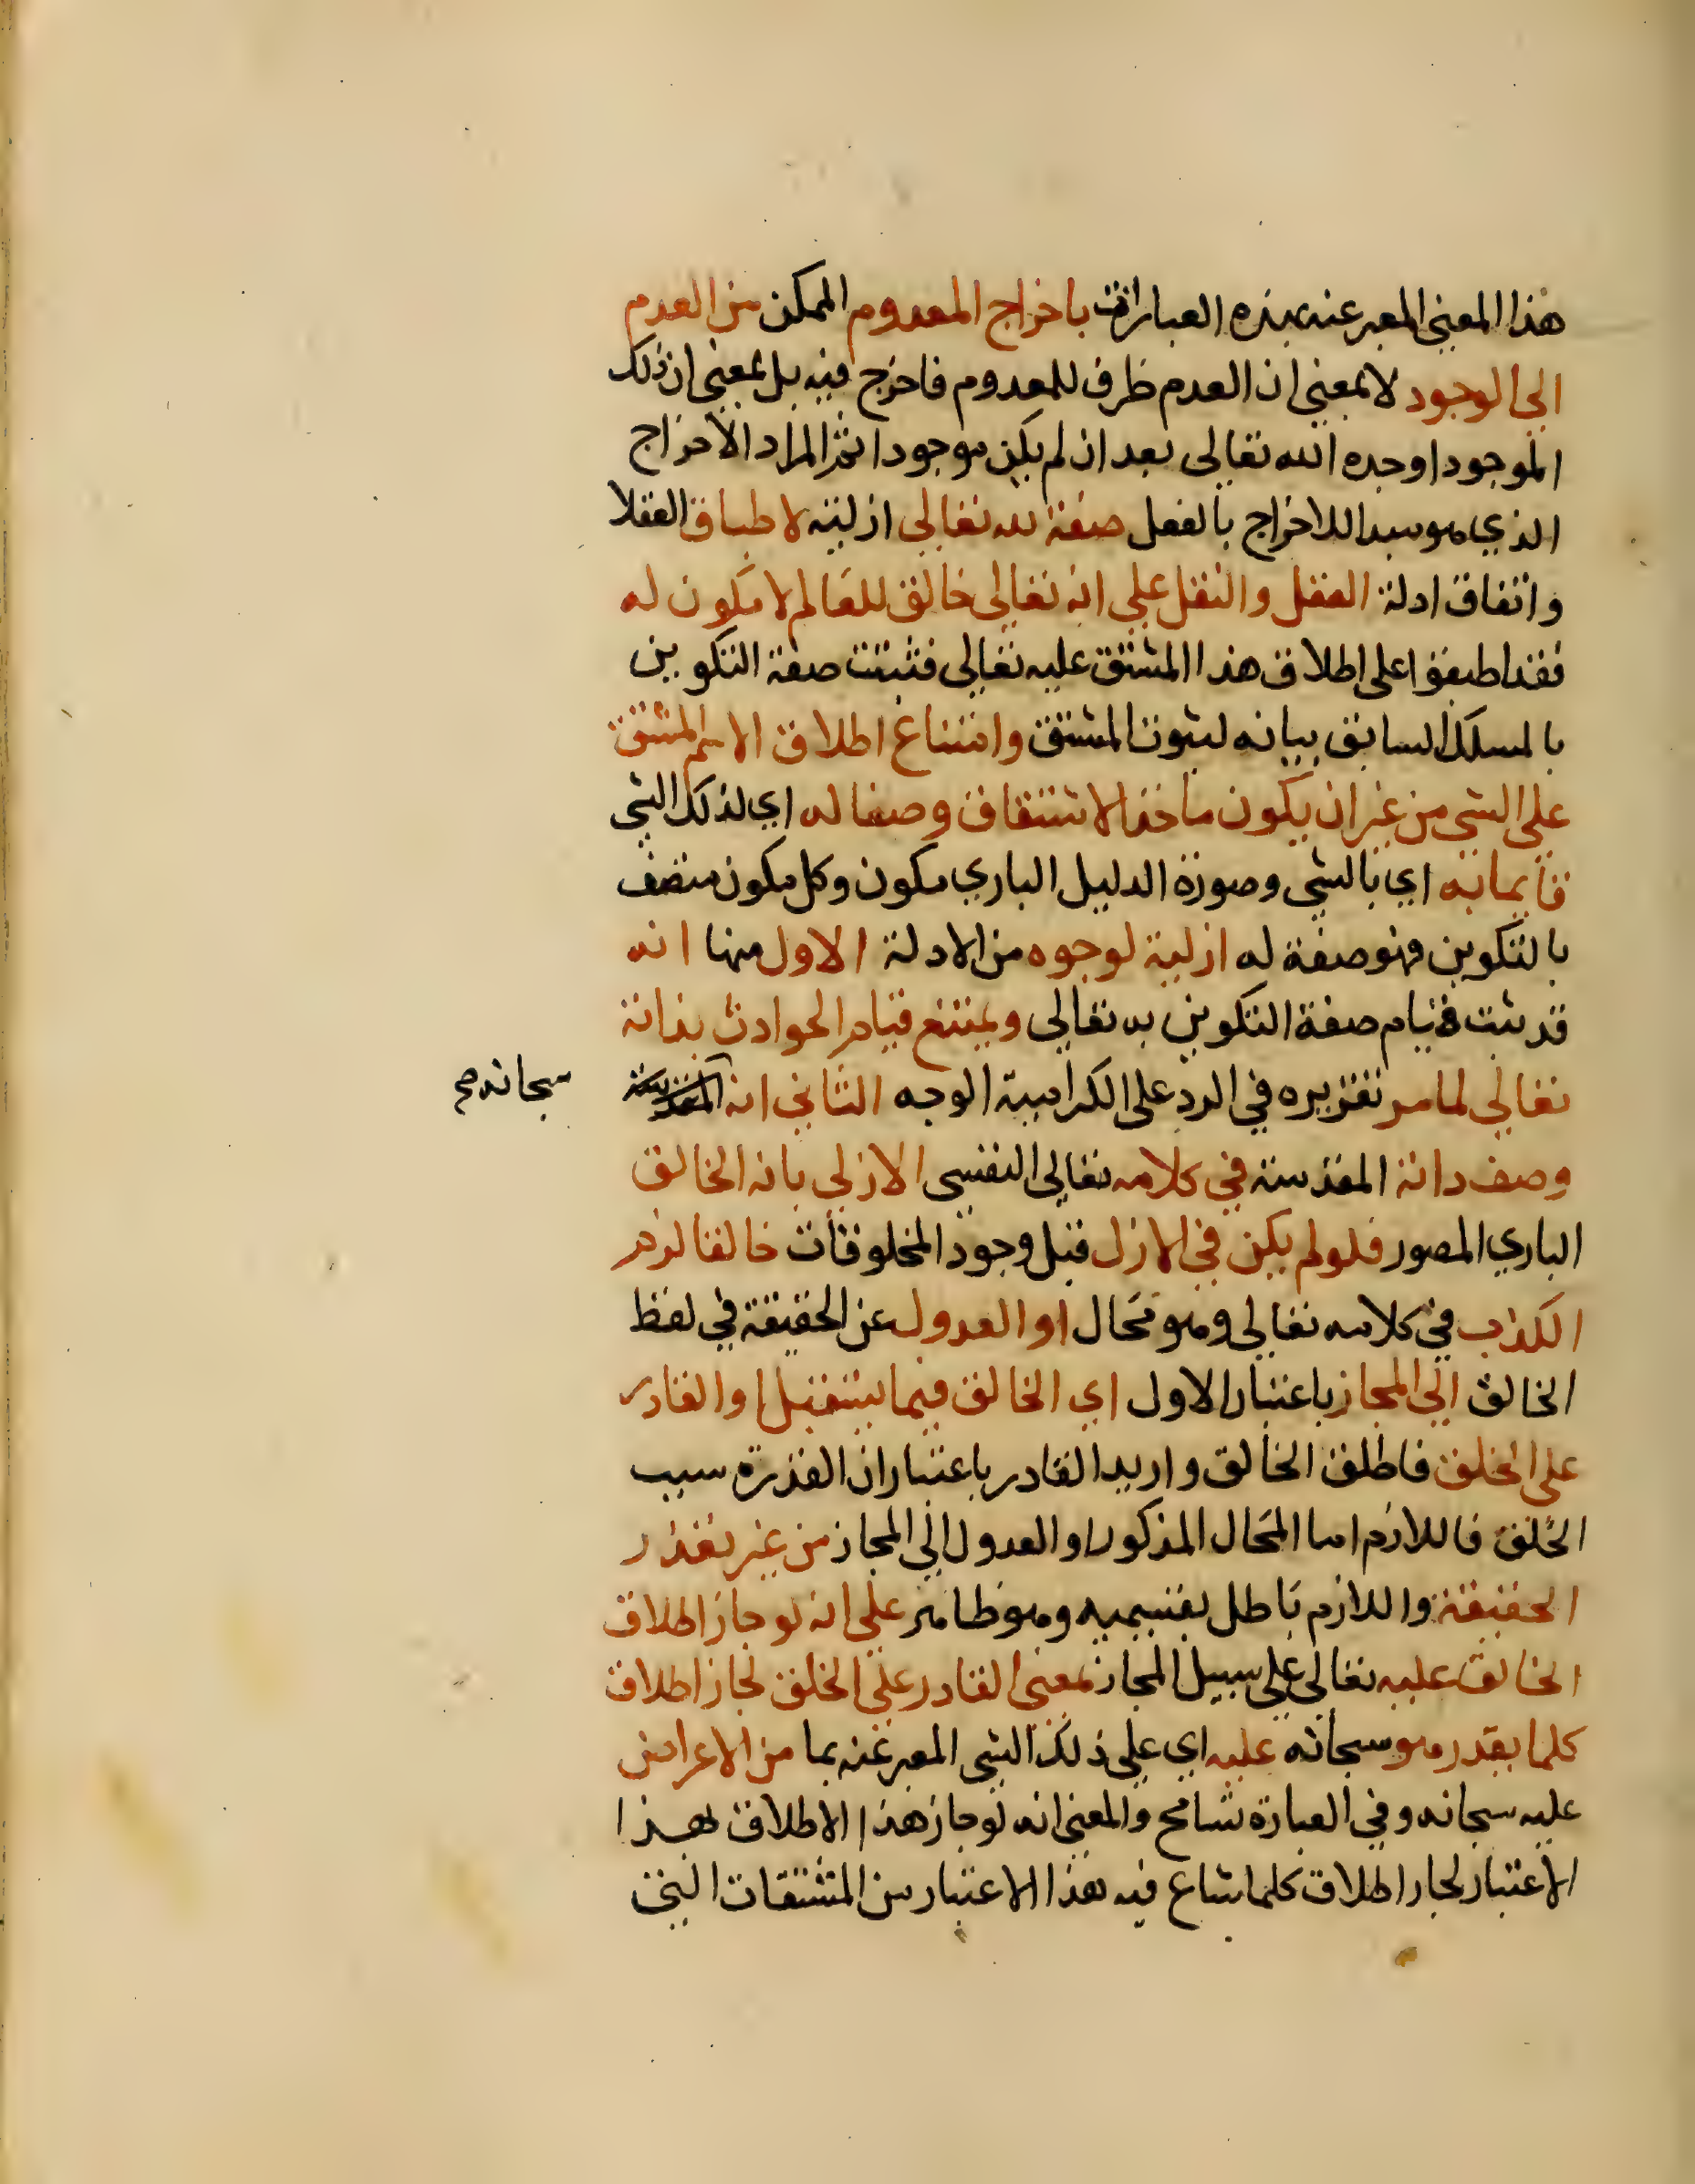 هذا المعني المعبر عنه بهذه العبارات باخراج المعدوم الممكن من العدم
الي الوجود لا بمعني ان العدم ظرف للمعدوم فاخرج فيه بل بمعني ان ذلك
الموجود اوجده الله تعالي بعد ان لم يكن موجودا ثم المراد الاخراج
الذي هو مبدا للاخراج بالفعل صفة لله تعالي ازلية لاطباق العقلا
واتفاق ادلة العقل والنقل علي انه تعالي خالق للعالم لا مكون له
فقد اطبقوا علي اطلاق هذا المشتق عليه تعالي فثبتت صفة التكوين
بالمسلك السابق بيانه لثبوت المشتق وامتناع اطلاق الاسم المشتق
علي الشي من غير ان يكون ماخذ الاشتقاق وصفا له اي لذلك الشي
قايما به اي بالشي وصورة الدليل الباري مكون وكل مكون متصف
بالتكوين فهو صفة له ازلية لوجوه من الادلة الاول منها انه
قد ثبت قيام صفة التكوين به تعالي ويمتنع قيام الحوادث بذاته
تعالي لما مر تقريره في الرد علي الكرامية الوجه الثاني انه
سبحانه صح
وصف ذاته المقدسة في كلامه تعالي النفسي الازلي بانه الخالق
الباري المصور فلو لم يكن في الازل قبل وجود المخلوقات خالقا لزم
الكذب في كلامه تعالي وهو محال او العدول عن الحقيقة في لفظ
الخالق الي المجاز باعتبار الاول اي الخالق فيما يستقبل او القادر
علي الخلق فاطلق الخالق واريد القادر باعتبار ان القدرة سبب
الخلق فاللازم اما المحال المذكور او العدول الي المجاز من غير تعذر
الحقيقة واللازم باطل بقسميه وهو ظاهر علي انه لو جاز اطلاق
الخالق عليه تعالي علي سبيل المجاز بمعني القادر علي الخلق لجاز اطلاق
كلما يقدر هو سبحانه عليه اي علي ذلك الشي المعبر عنه بما من الاعراض
عليه سبحانه وفي العبارة تسامح والمعني انه لو جاز هذا الاطلاق لهذا
الاعتبار لجاز اطلاق كلما شاع فيه هذا الاعتبار من المشتقات التي